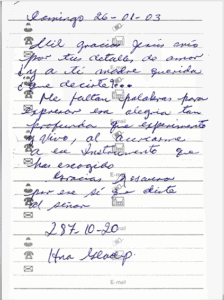 Domingo 26-01-03
Mil gracias Jesús mío
por tus detalles de amor
y a ti madre querida
que decirte?...
Me faltan palabras para
expresar esa alegría tan
profunda que experimento
y vivo, al acercarme
a ese Instrumento que
has escogido
Gracias
por ese sí que diste
al señor
287-10-20
Hna Gladys
E-mail
E-mail